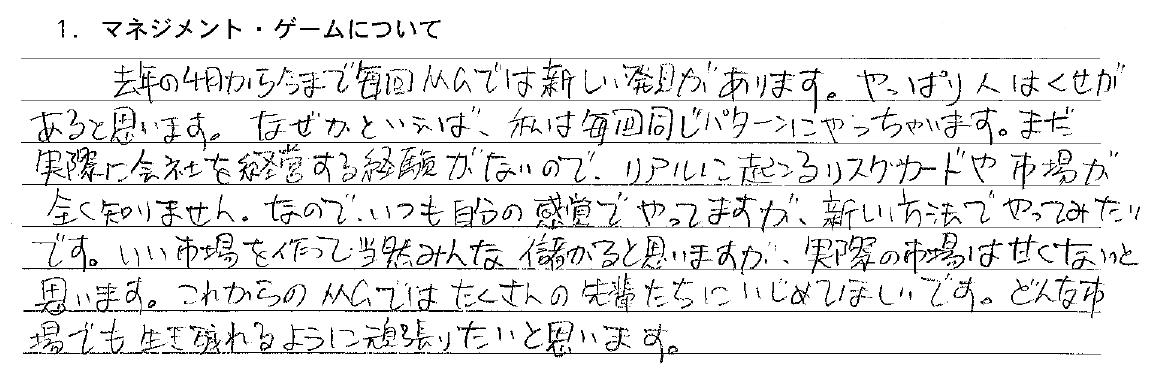 1. マネジメント・ゲームについて
去年の4月から今まで毎回MGでは新しい発見があります。やっぱり人はくせが
あると思います。なぜかといえば、私は毎回同じパターンにやっちゃいます。まだ
実際に会社を経営する経験がないので、リアルに起こるリスクカードや市場が
全く知りません。なので、いつも自分の感覚でやってますが、新しい方法でやってみたい
です。いい市場を作って当然みんな儲かると思いますが、実際の市場は甘くないと
思います。これからのMGではたくさんの先輩たちにいじめてほしいです。どんな市
場でも生き残れるように頑張りたいと思います。